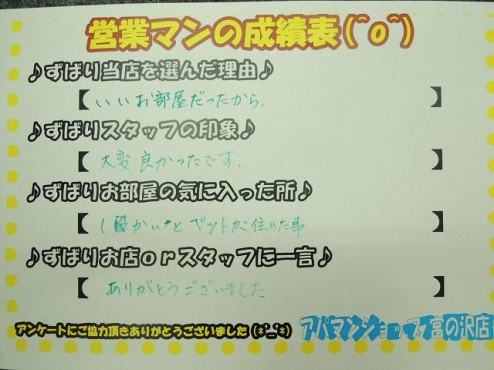 営業マンの成績表(^o^)
♪ずばり当店を選んだ理由♪
【いいお部屋だったから。】
♪ずばりスタッフの印象♪
【大変良かったです。】
♪ずばりお部屋の気に入った所♪
【ペットが住めた事】
♪ずばりお店orスタッフに一言♪
【ありがとうございました】
アンケートにご協力頂きありがとうございました(*^_^*)
アパマンショップ宮の沢店